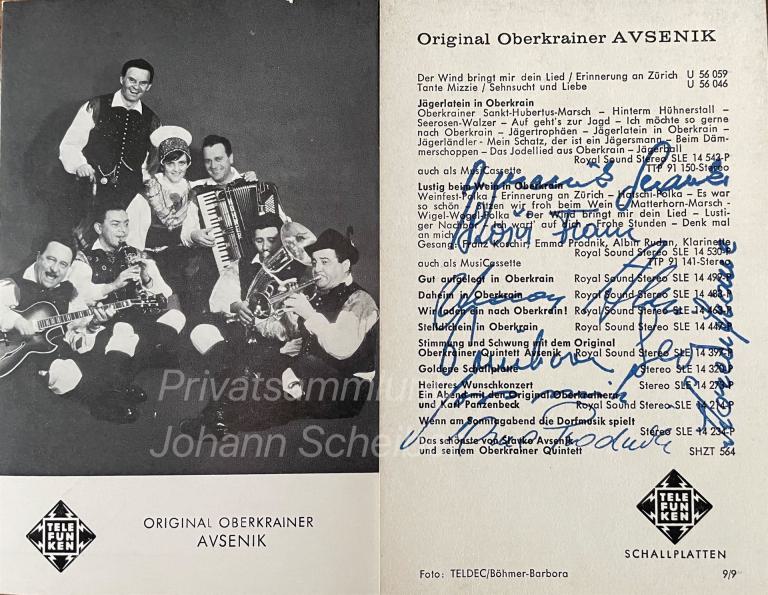 Privatsammlu
Johann Scheid
TELE
FUN
KEN
ORIGINAL OBERKRAINER
AVSENIK
Original Oberkrainer AVSENIK
Der Wind bringt mir dein Lied / Erinnerung an Zürich U 56 059
Tante Mizzie / Sehnsucht und Liebe U 56 046
Jägerlatein in Oberkrain
Oberkrainer Sankt-Hubertus-Marsch – Hinterm Hühnerstall –
Seerosen-Walzer – Auf geht's zur Jagd – Ich möchte so gerne
nach Oberkrain – Jägertrophäen – Jägerlatein in Oberkrain –
Jägerländler - Mein Schatz, der ist ein Jägersmann – Beim Däm-
merschoppen – Das Jodellied aus Oberkrain – Jägerball
Royal Sound Stereo SLE 14 542-P
auch als MusiCassette TTP 91 150-Stereo
Lustig beim Wein in Oberkrain
Weinfest-Polka / Erinnerung an Zürich – Hatschi-Polka – Es war
so schön – Sitzen wir froh beim Wein – Matterhorn-Marsch -
Wigel-Wogel-Polka – Der Wind bringt mir dein Lied – Lusti-
ger Nachbar – Ich wart' auf die Frohe Stunden – Denk mal
an mich
Gesang: Franz Koschir, Emma Prodnik, Albin Rudan, Klarinette
Royal Sound Stereo SLE 14 530-P
auch als MusiCassette TTP 91 141-Stereo
Gut aufgelegt in Oberkrain Royal Sound Stereo SLE 14 499-P
Daheim in Oberkrain Royal Sound Stereo SLE 14 488-P
Wir laden ein nach Oberkrain! Royal Sound Stereo SLE 14 464-P
Stelldichein in Oberkrain Royal Sound Stereo SLE 14 447-P
Stimmung und Schwung mit dem Original
Oberkrainer Quintett Avsenik Royal Sound Stereo SLE 14 397-P
Goldene Schallplatte Stereo SLE 14 320-P
Heiteres Wunschkonzert Stereo SLE 14 273-P
Ein Abend mit den Original Oberkrainern
und Karl Panzenbeck Royal Sound Stereo SLE 14 214-P
Wenn am Sonntagabend die Dorfmusik spielt
Stereo SLE 14 234-P
Das schönste von Slavko Avsenik
und seinem Oberkrainer Quintett SHZT 564
TELE
FUN
KEN
SCHALLPLATTEN
Foto: TELDEC/Böhmer-Barbora 9/9